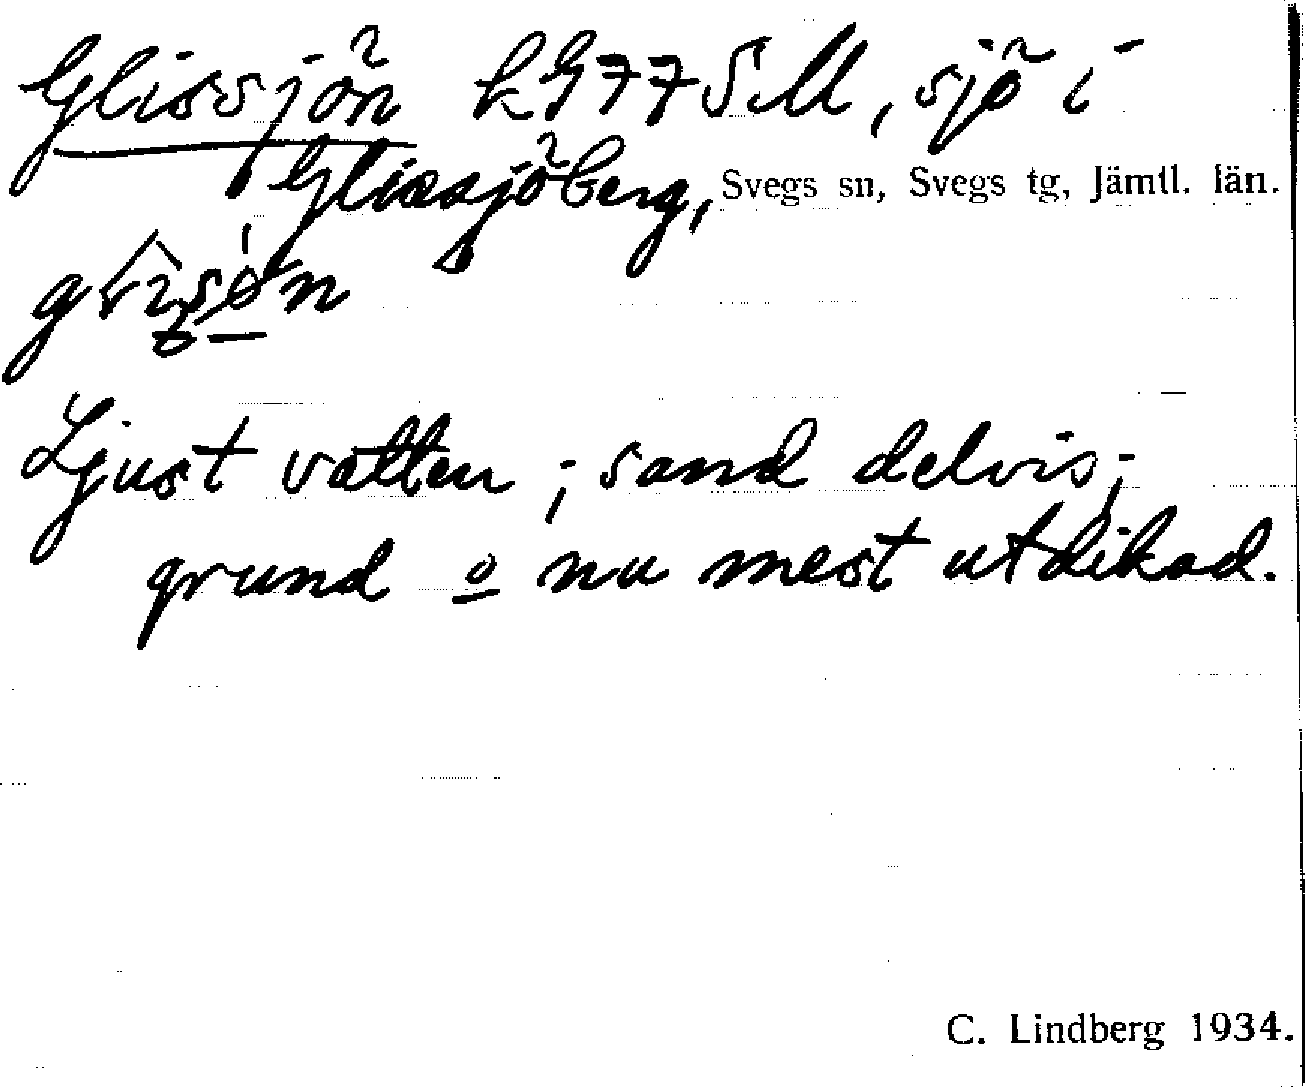 Glissjön k G 77 SM, sjö i
Glissjöberg, Svegs sn, Svegs tg, Jämtl. län.
Ljust vatten; sand delvis;
grund o nu mest utdikad.
C. Lindberg 1934.